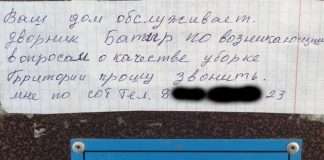 Ваш дом обслуживает.
дворник Батыр по возникающим
вопросам о качестве уборке
территории прошу звонить.
мне по сот тел. 8 23